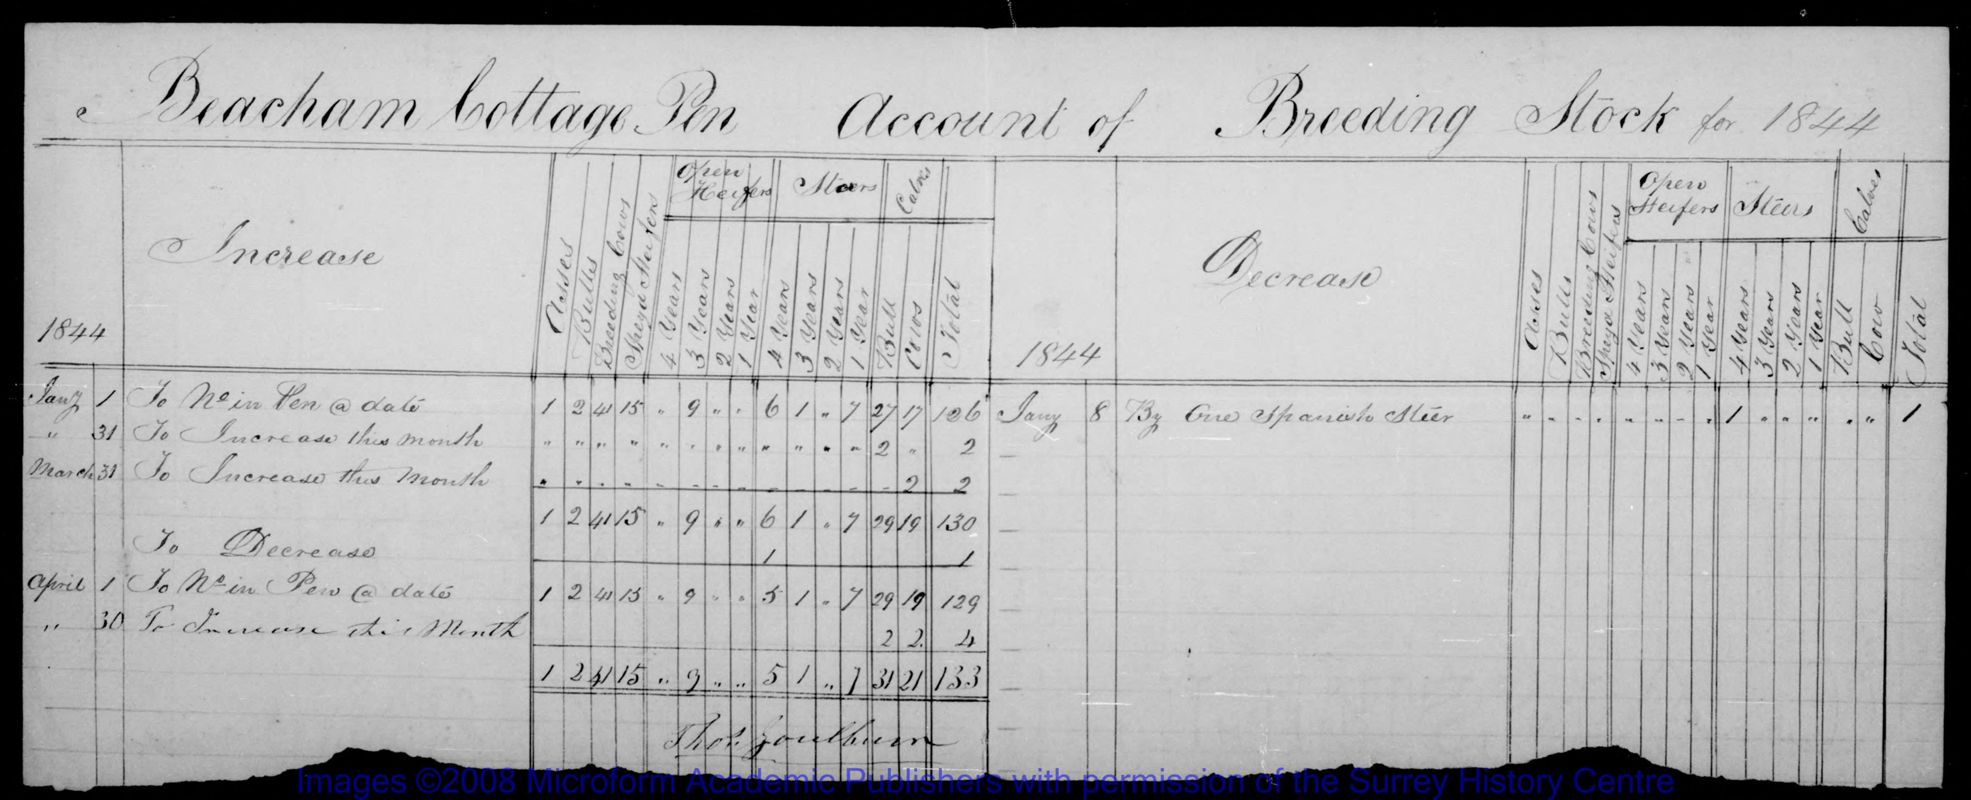 Beacham Cottage Pen Account of Breeding Stock for 1844
Increase
1844
Asses
Bulls
Breeding Cows
Spey'd Heifers
Open Heifers
4 Years
3 Years
2 Years
1 Year
Steers
4 Years
3 Years
2 Years
1 Year
Calves
Bull
Cows
Total
Jany 1 To No in Pen @ date 1 2 41 15 " 9 " " 6 1 " 7 27 17 126
" 31 To Increase this month " " " " " " " " " " " " 2 " 2
March 31 To Increase this Month " " " " " - - - - - - - - 2 2
1 2 41 15 " 9 " " 6 1 " 7 29 19 130
To Decrease 1 1
April 1 To No in Pen @ date 1 2 41 15 " 9 " " 5 1 " 7 29 19 129
" 30 To Increase this Month 2 2 4
1 2 41 15 " 9 " " 5 1 " 7 31 21 133
Thos. Goulburn
Decrease
1844
Asses
Bulls
Breeding Cows
Spey'd Heifers
Open Heifers
4 Years
3 Years
2 Years
1 Year
Steers
4 Years
3 Years
2 Years
1 Year
Calves
Bull
Cow
Total
Jany 8 By One Spanish Steer " " " " " " " " 1 " " " " " 1
Images ©2008 Microform Academic Publishers with permission of the Surrey History Centre